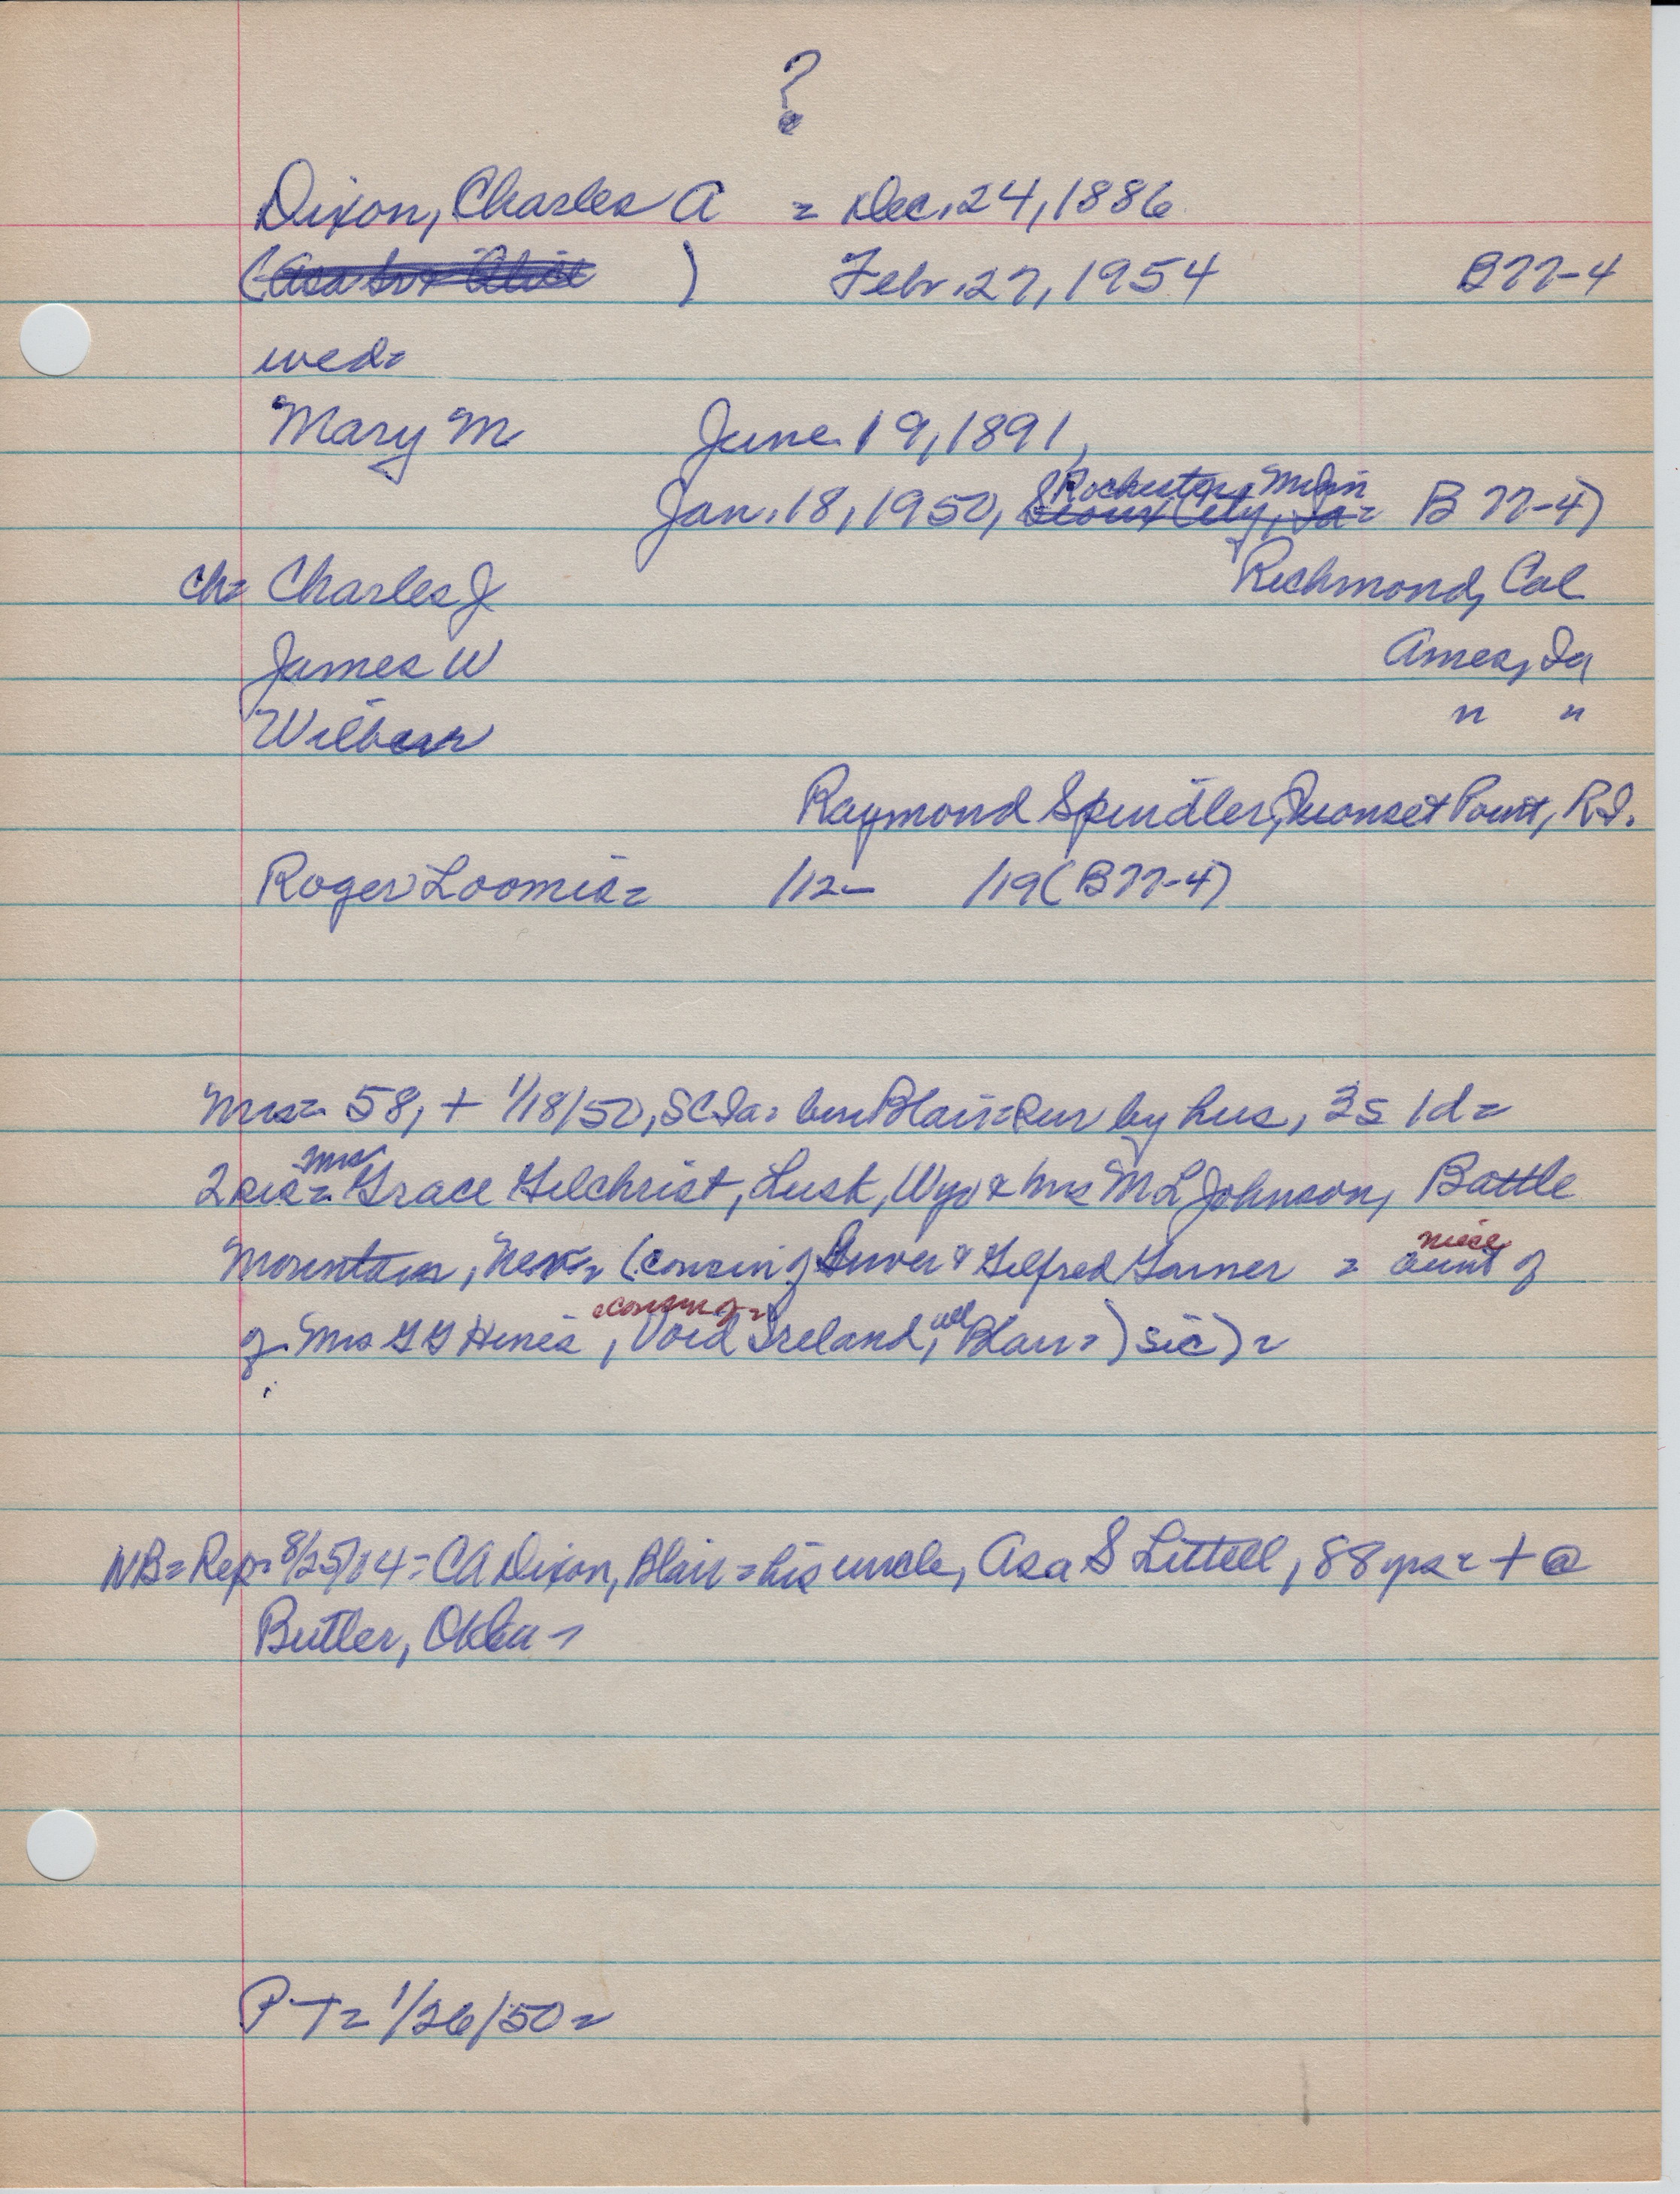 ?
Dixon, Charles A = Dec. 24, 1886
( ) Febr. 27, 1954 B77-4
wed=
Mary M June 19, 1891,
Rochester, Minn
Jan. 18, 1950, Sioux City, Ia= B 77-4)
ch= Charles J Richmond, Cal
James W Ames, Ia
Wilbur " "
Raymond Spindler, Quonset Point, R.I.
Roger Loomis= /12- /19(B77-4)
Mrs= 58, + 1/18/50, SCIa= Blair=Sur by hus, 3s 1d=
mrs
2 sis= Grace Gilchrist, Lusk, Wyo & Mrs M L Johnson, Battle
niece
Mountain, Nev= (cousin of & Gilfred Garner = aunt of
cousin of=
of Mrs G G Hines, Void Ireland, all Blair=) sic)=
NB=Rep= 8/25/14=CA Dixon, Blair=his uncle, Asa S Littell, 88 yrs= + @
Butler, Okla=
P-T= 1/26/50=